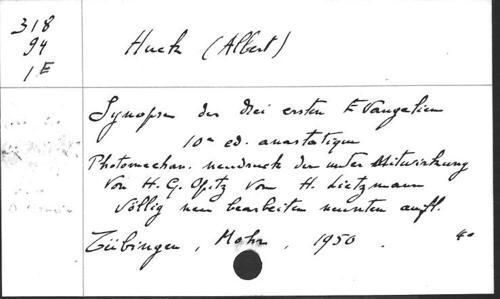 318
94
1E
Huck (Albert)
Synopse der drei ersten Evangelien
10a ed. anastatique
Photomechan. neudruck der unter Mitwirkung
Von H. G. Opitz Von H. Lietzmann
Völlig neu bearbeiten neunten aufl.
Tübingen, Mohr, 1950. 4o